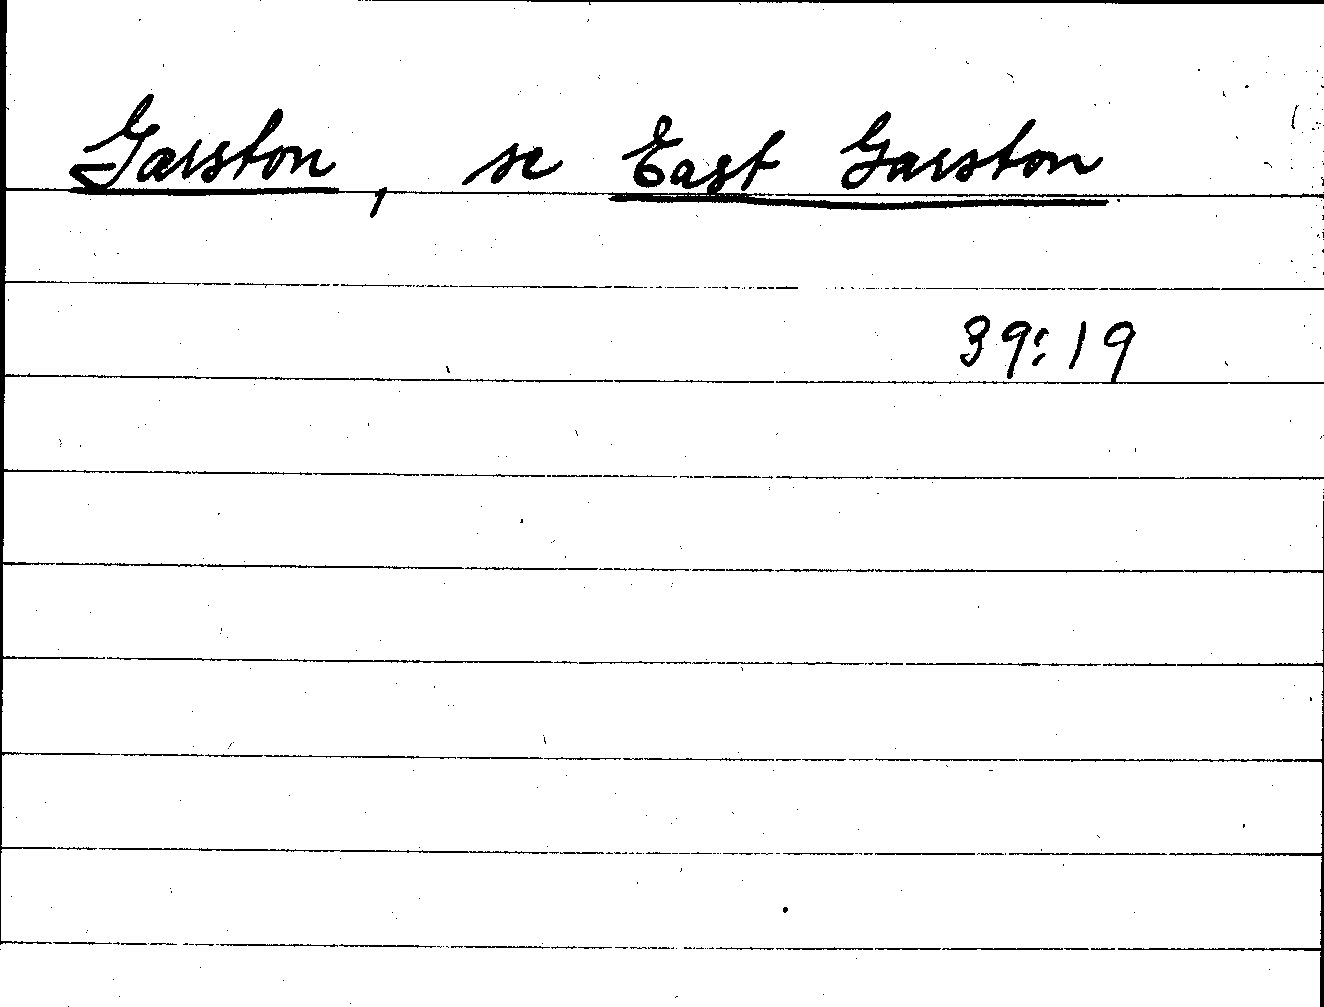 Garston, se East Garston
39:19